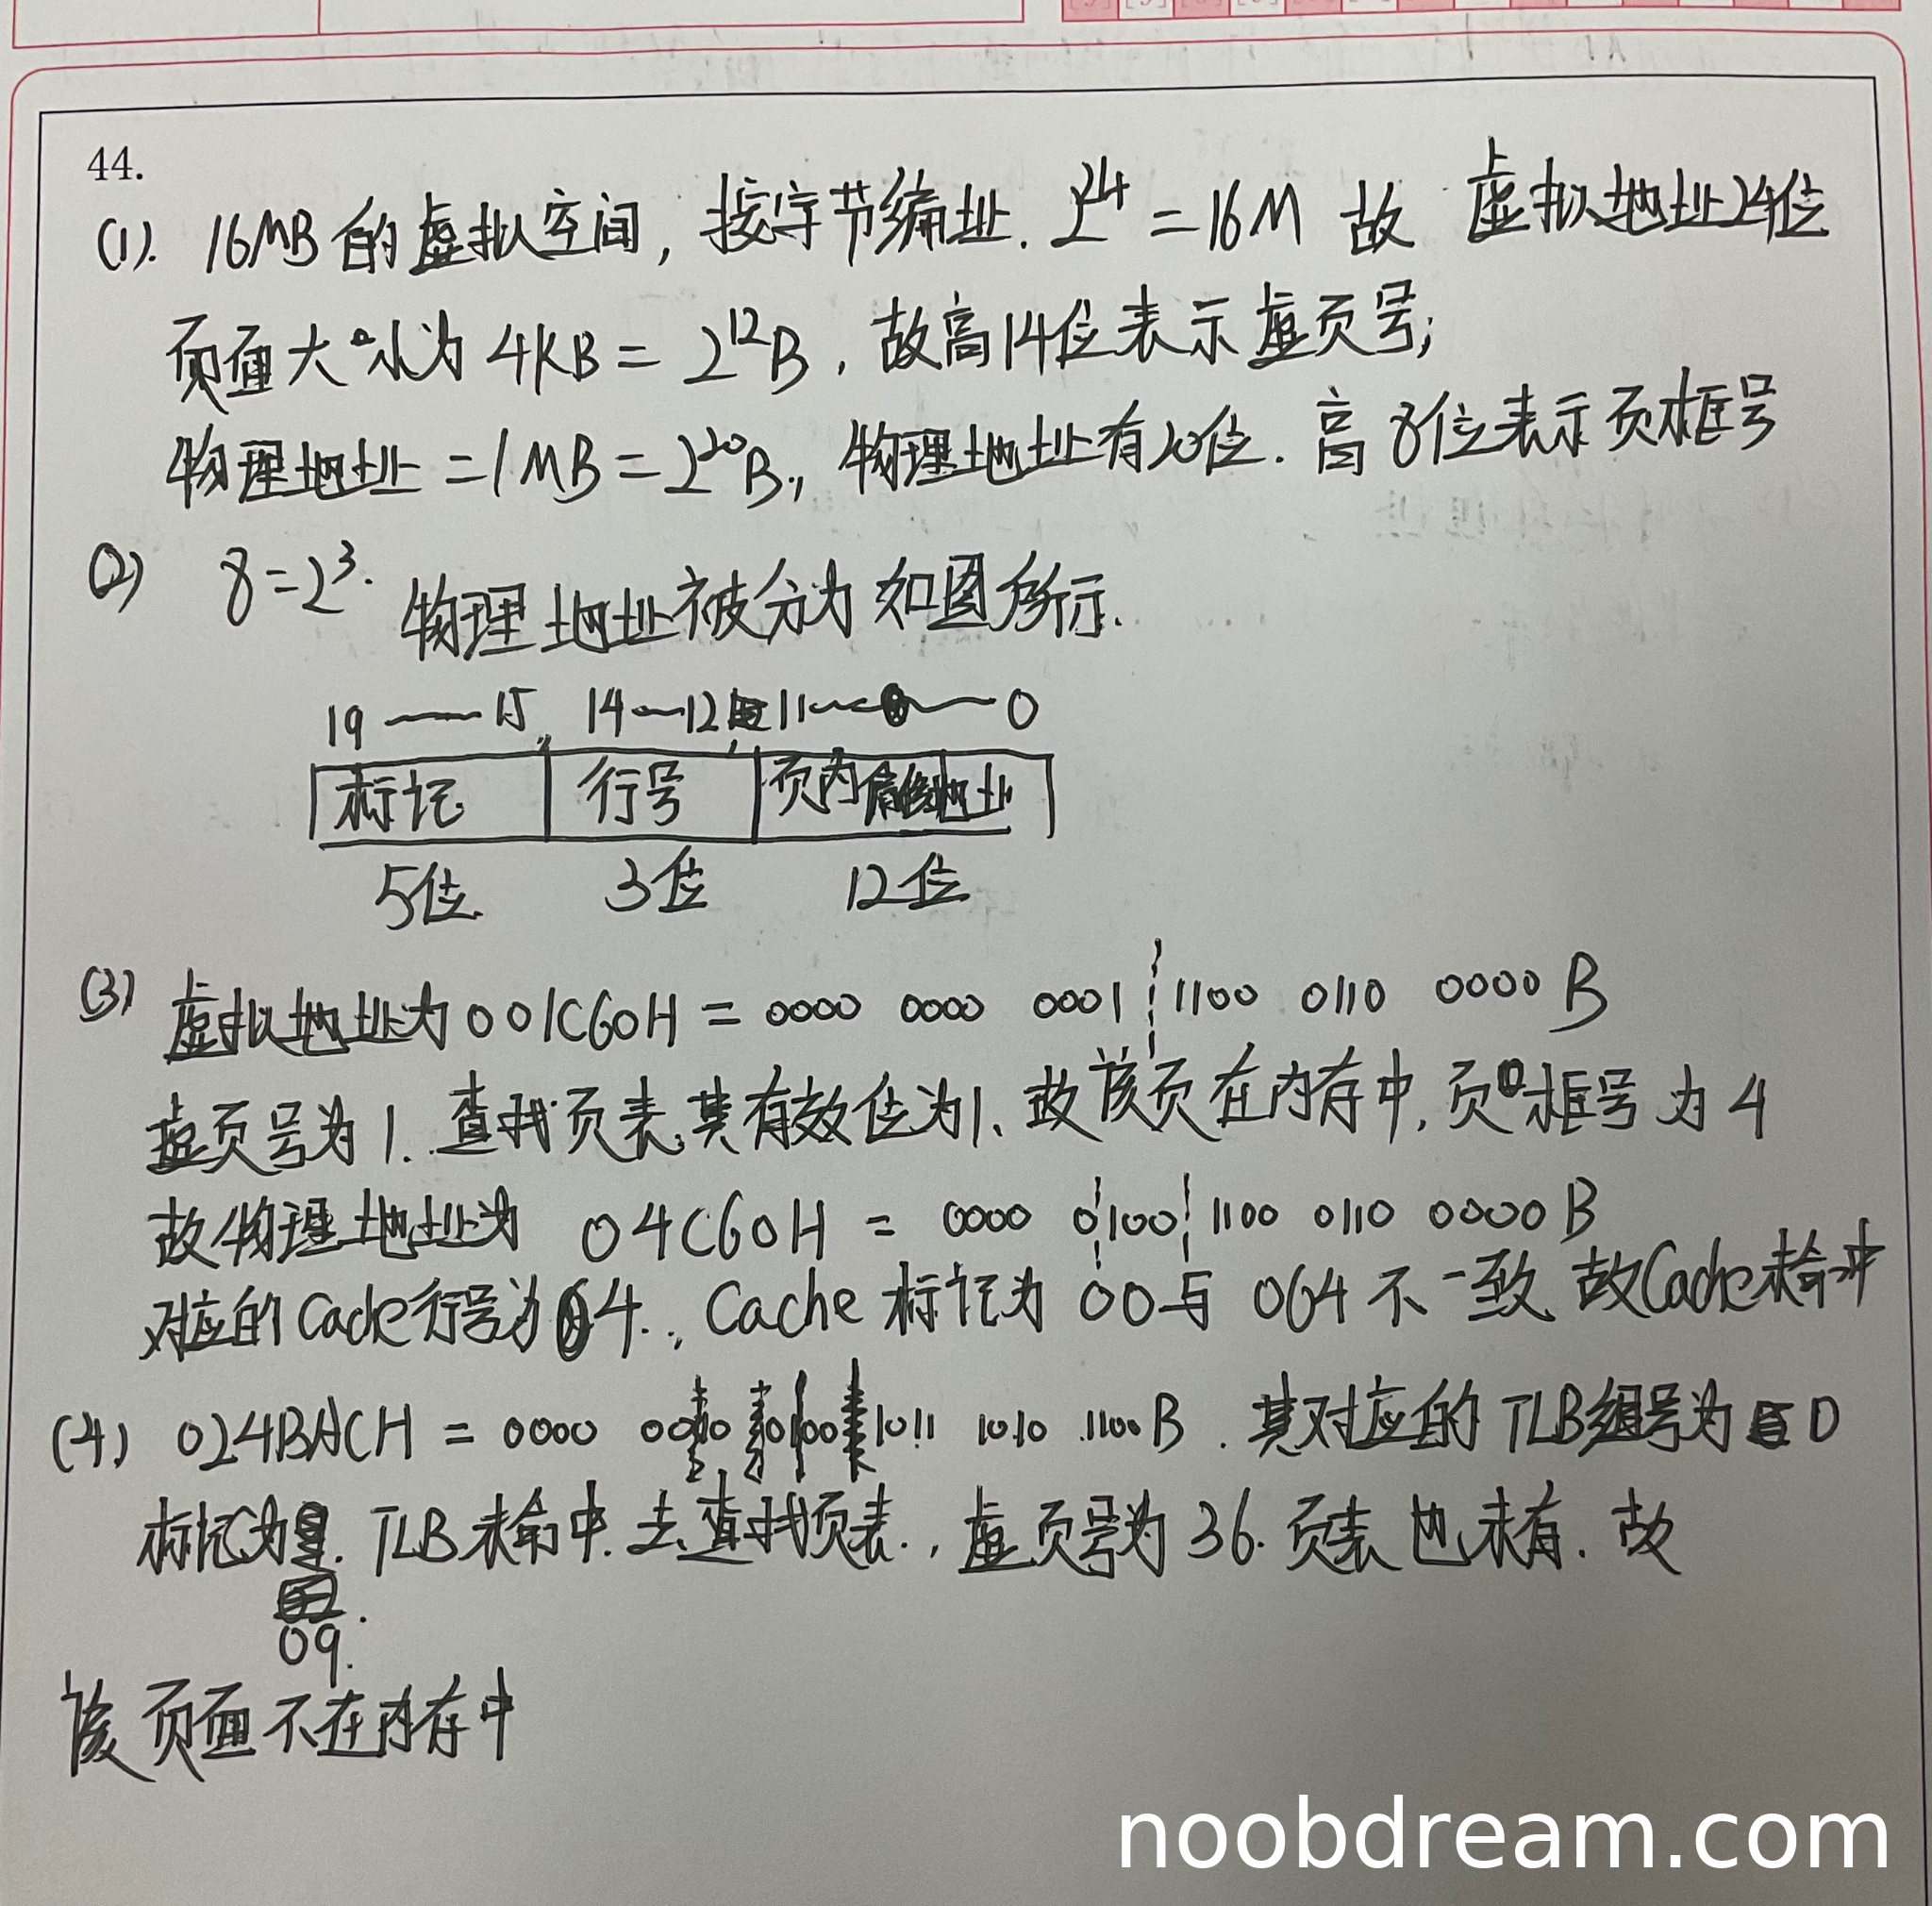 44.
(1). 16MB的虚拟空间, 按字节编址. 2^24 = 16M 故 虚拟地址24位
页面大小为 4KB = 2^12B, 故高14位表示虚页号;
物理地址 = 1MB = 2^20B., 物理地址有20位. 高8位表示页框号
(2) 8=2^3. 物理地址被分为如图所示.
19 —— 15 14—12 11—— 0
标记 行号 页内偏移地址
5位. 3位 12位
(3) 虚拟地址为001C60H = 0000 0000 0001 1100 0110 0000 B
虚页号为1. 查找页表,其有效位为1、故该页在内存中, 页框号为4
故物理地址为 04C60H = 0000 0100 1100 0110 0000 B
对应的Cache行号为4., Cache 标记为 00与 064 不一致 故Cache未命中
(4) 024BACH = 0000 0010 0100 1011 1010 1100B. 其对应的TLB组号为 0
标记为 . TLB未命中. 去查找页表., 虚页号为36. 页表也未有. 故
09.
该页面不在内存中
noobdream.com